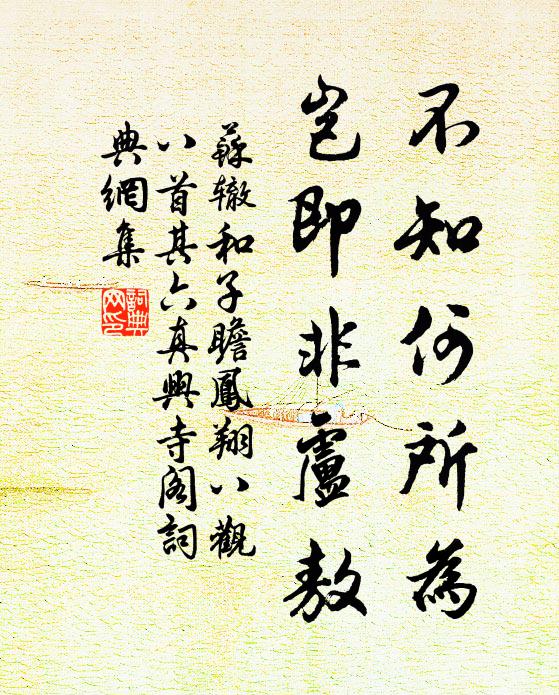 不知何所為
豈即非盧敖
蘇辙和子瞻鳳翔八觀
八首其六真興寺阁詞
典網集
詞典
网印